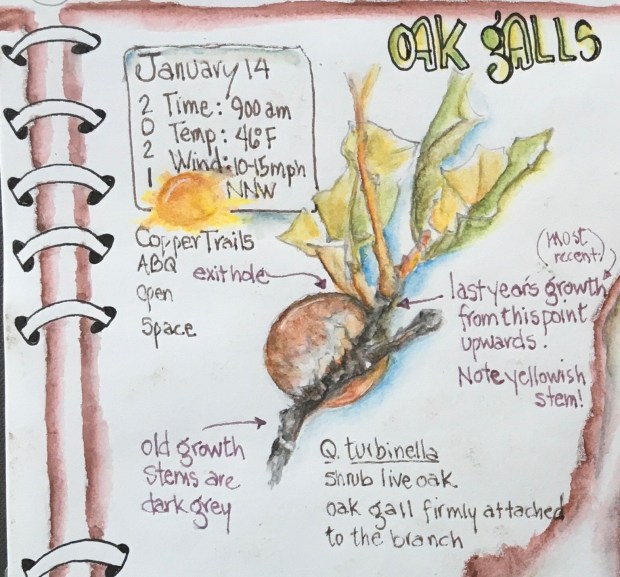 OAK gALLS
January 14
2021
Time: 900 am
Temp: 46°F
Wind: 10-15mph
NNW
Copper Trails
ABQ
Open
Space
exit hole
(most
recent)
last year's growth
from this point
upwards.
Note yellowish
stem!
old growth
stems are
dark grey
Q. turbinella
shrub live oak.
oak gall firmly attached
to the branch